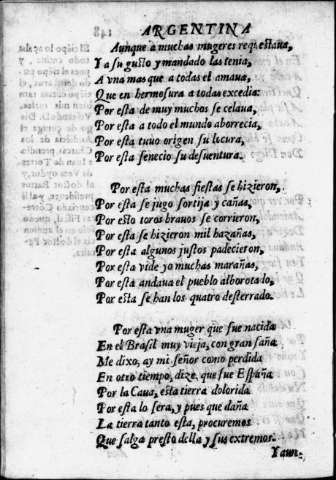 ARGENTINA
Aunque a muchas mugeres requestaua,
Y a su gusto y mandado las tenia,
A vna mas que a todas el amaua,
Que en hermosura a todas excedia:
Por esta de muy muchos se celaua,
Por esta a todo el mundo aborrecia,
Por esta tuuo origen su locura,
Por esta fenecio su desuentura.
Por esta muchas fiestas se hizieron,
Por esta se jugo sortija y cañas,
Por esto toros brauos se corrieron,
Por esta se hizieron mil hazañas,
Por esta algunos justos padecieron,
Por esta vide yo muchas marañas,
Por esta andaua el pueblo alborotado,
Por esta se han los quatro desterrado.
Por esta vna muger que fue nacida
En el Brasil muy vieja, con gran saña
Me dixo, ay mi señor como perdida
En otro tiempo, dize, que fue España
Por la Caua, esta tierra dolorida
Por esta lo sera, y pues que daña
La tierra tanto esta, procuremos
Que salga presto della y sus extremos.
Yaun-